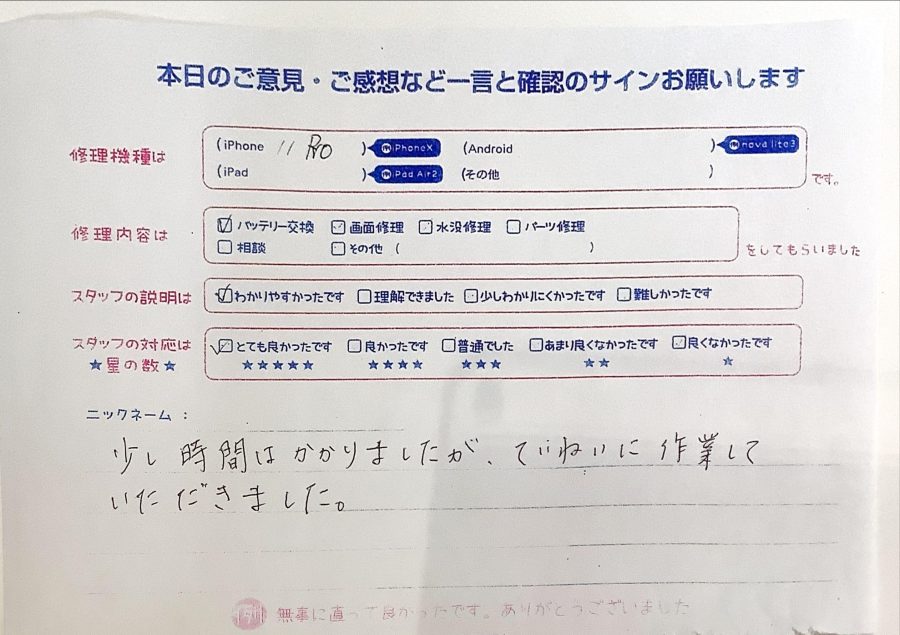 本日のご意見・ご感想など一言と確認のサインお願いします
修理機種は
(iPhone 11 Pro ) 例iPhoneX (Android ) 例nova lite3
(iPad ) 例iPad Air2 (その他 ) です。
修理内容は
☑バッテリー交換 □画面修理 □水没修理 □パーツ修理
□相談 □その他 ( ) をしてもらいました
スタッフの説明は ☑わかりやすかったです □理解できました □少しわかりにくかったです □難しかったです
スタッフの対応は ☑とても良かったです □良かったです □普通でした □あまり良くなかったです □良くなかったです
★星の数★ ★★★★★ ★★★★ ★★★ ★★ ★
ニックネーム：
少し時間はかかりましたが、ていねいに作業して
いただきました。
例 無事に直って良かったです。ありがとうございました